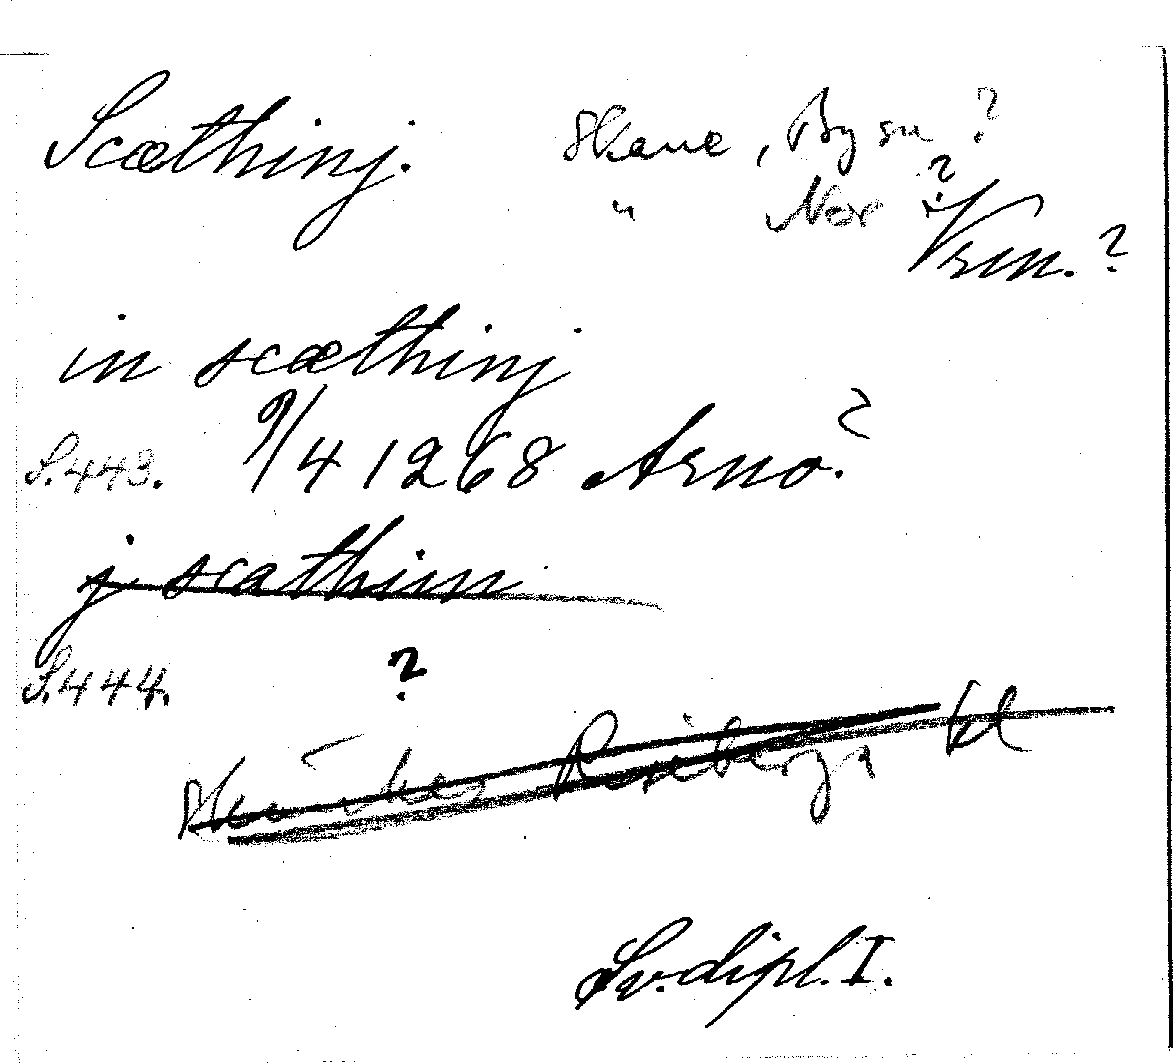 Scæthinj. Skane, By sn ?
" Nor ?
Vrm. ?
in scæthinj
S. 443. 9/4 1268 Arno. ?
j scathinn
S. 444. ?
Sv. dipl. I.